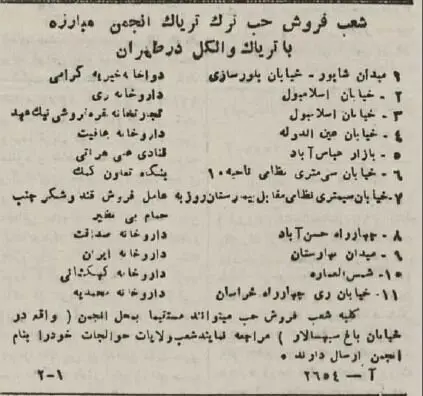 شعب فروش حب ترك ترياك انجمن مبارزه
با ترياك والكل در طهران
۱ ميدان شاپور - خيابان بلورسازی دواخانه خيريه گرامی
۲ - خيابان اسلامبول داروخانه ری
۳ - خيابان اسلامبول تجارتخانه قره‌نروشی نيك عهد
۴ - خيابان عين الدوله داروخانه عافيت
۵ - بازار عباس آباد قنادی علی هراتی
۶ - خيابان سی متری نظامی ناحيه ۱۰ بنگاه تعاون كمك
۷-خيابان سيمتری نظامی مقابل بيمارستان روزبه عامل فروش قند و شكر جنب
حمام بی نظير
۸ - چهارراه حسن آباد داروخانه صداقت
۹ - ميدان بهارستان داروخانه ايران
۱۰- شمس العماره داروخانه كهكشانی
۱۱ - خيابان ری چهارراه خراسان داروخانه محمديه
كليه شعب فروش حب ميتوانند مستقيما بمحل انجمن ( واقع در
خيابان باغ سپهسالار ) مراجعه نمايند شعب ولايات حوالجات خودرا بنام
انجمن ارسال دارند ۰
آ — ۲۶۵۴ ۲-۱